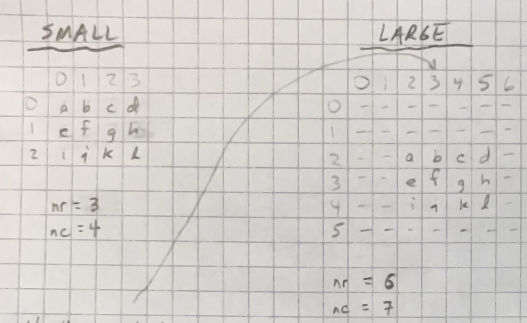 SMALL
0 1 2 3
0 a b c d
1 e f g h
2 i j k l
nr = 3
nc = 4
LARGE
0 1 2 3 4 5 6
0 - - - - - - -
1 - - - - - - -
2 - - a b c d -
3 - - e f g h -
4 - - i j k l -
5 - - - - - - -
nr = 6
nc = 7